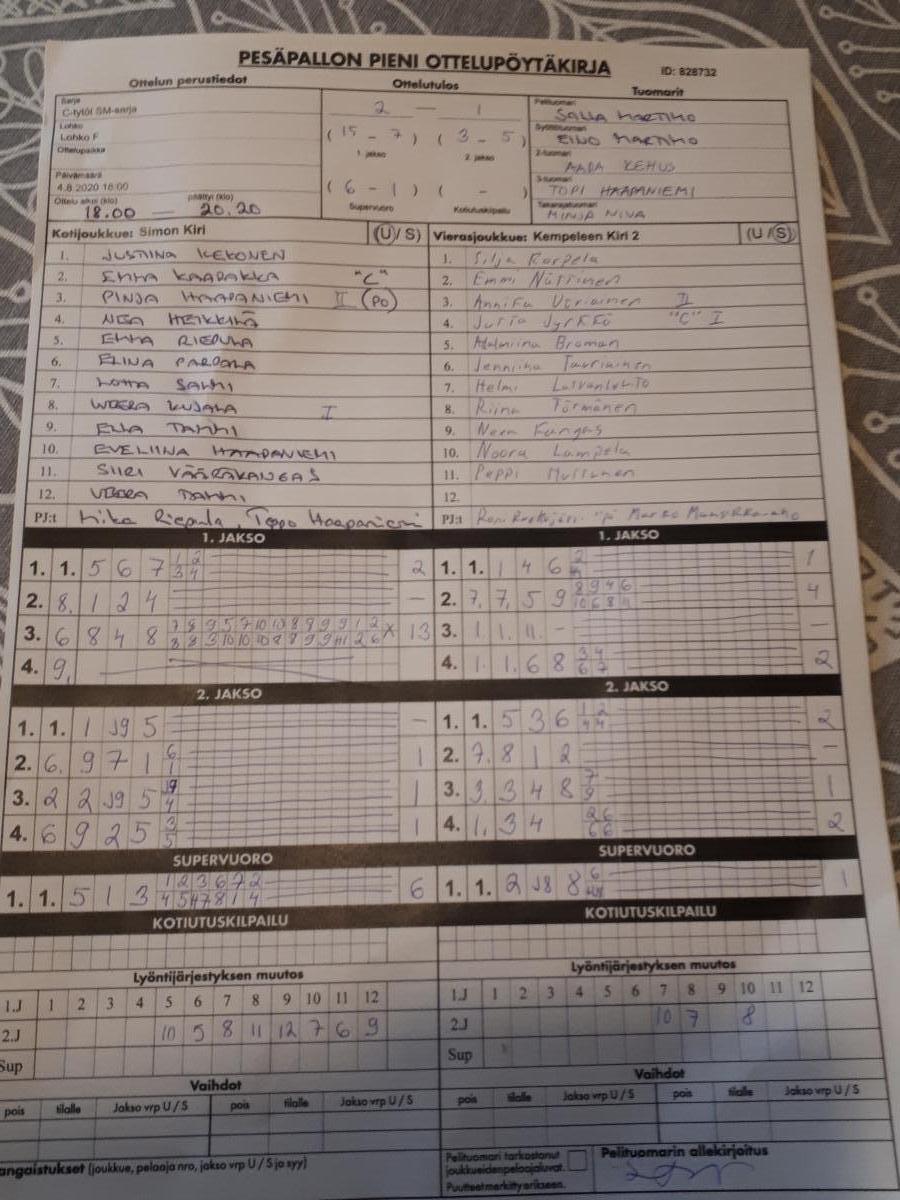 PESÄPALLON PIENI OTTELUPÖYTÄKIRJA
ID: 828732
Ottelun perustiedot
Ottelutulos
Tuomarit
Sarja
C-tytöt SM-sarja
Lohko
Lohko F
Ottelupaikka
Päivämäärä
4.8.2020 18:00
Ottelu alkoi (klo) päättyi (klo)
18.00 — 20.20
2 — 1
(15 - 7) (3 - 5)
1. jakso 2. jakso
(6 - 1) ( - )
Supervuoro Kotiutuskilpailu
Pelituomari
SALLA MARTIMO
Syöttötuomari
EINO MARTIMO
2-tuomari
AADA KEHUS
3-tuomari
TOPI HAAPANIEMI
Takarajatuomari
MINJA NIVA
Kotijoukkue: Simon Kiri (U/S)
1. JUSTIINA KEKONEN
2. EMMA KAARAKKA "C"
3. PINJA HAAPANIEMI II (PO)
4. NEA HEIKKILÄ
5. EMMA RIEPULA
6. ELINA
7. LOTTA SALMI
8. WEERA KUJALA I
9. ELLA TAMMI
10. EVELIINA HAAPANIEMI
11. SIIRI VÄÄRÄKANGAS
12. VEERA TAMMI
PJ:t Mika Riepula, Teppo Haapaniemi
Vierasjoukkue: Kempeleen Kiri 2 (U/S)
1. Silja Karpela
2. Emmi Nüttinen
3. Annika II
4. Julia Jyrkkö "C" I
5. Adalmiina Broman
6. Jenniina Tauriainen
7. Helmi Latvanlehto
8. Riina Törmänen
9. Neea Kangas
10. Noora Lampela
11. Peppi Mursunen
12.
PJ:t "PJ" Marko
1. JAKSO
1. 1. 5 6 7 1 2 2
3 4
2. 8. 1 2 4 —
3. 6 8 4 8 7 8 9 5 7 10 10 8 9 9 1 2 x 13
8 8 3 10 10 10 8 8 9 9 11 2 6
4. 9.
1. JAKSO
1. 1. 1 4 6 2 1
2. 7. 7. 5 9 8 9 4 6 4
10 6 8 11
3. 1. 1. 11. - —
4. 1. 1. 6 8 3 4 2
6 7
2. JAKSO
1. 1. 1 J9 5 —
2. 6. 9 7 1 6 1
1
3. 2 2 J9 5 J9 1
4
4. 6 9 2 5 3 1
5
2. JAKSO
1. 1. 5 3 6 1 2 2
4 4
2. 7. 8 1 2 —
3. 3. 3 4 8 7 1
9
4. 1. 3 4 2 6 2
6 6
SUPERVUORO
1. 1. 5 1 3 1 2 3 6 7 2 6
4 5 4 7 8 1 4
SUPERVUORO
1. 1. 2 J8 8 6 1
KOTIUTUSKILPAILU
KOTIUTUSKILPAILU
Lyöntijärjestyksen muutos
1.J 1 2 3 4 5 6 7 8 9 10 11 12
2.J 10 5 8 11 12 7 6 9
Sup
Lyöntijärjestyksen muutos
1.J 1 2 3 4 5 6 7 8 9 10 11 12
2.J 10 7 8
Sup
Vaihdot
pois tilalle Jakso vrp U / S pois tilalle Jakso vrp U / S
Vaihdot
pois tilalle Jakso vrp U / S pois tilalle Jakso vrp U / S
angaistukset (joukkue, pelaaja nro, jakso vrp U / S ja syy)
Pelituomari tarkastanut
joukkueidenpelaajaluvat.
Puutteet merkitty erikseen.
Pelituomarin allekirjoitus